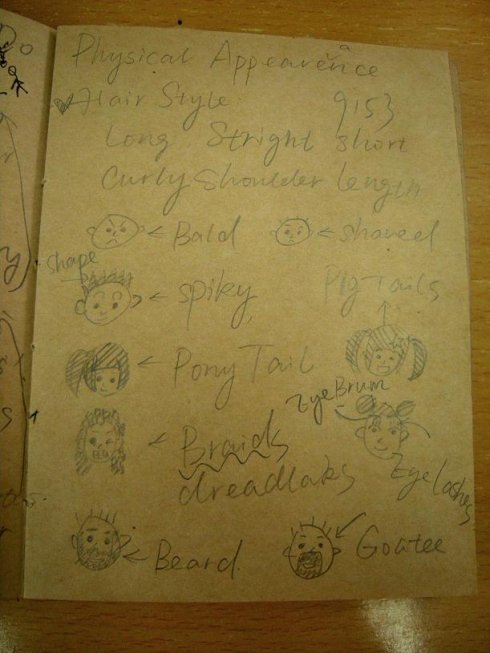 Physical Appearence
a
Hair Style:
9:53
Long Stright short
Curly Shoulder length
Bald
shaved
shape
spiky
Pig Tails
Pony Tail
EyeBrum
Braids
dreadlaks
Eye lashes
Beard
Goatee